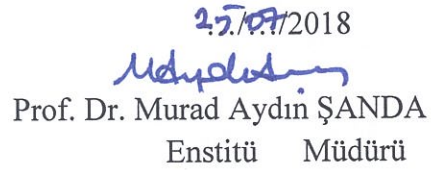 25/07/2018
Prof. Dr. Murad Aydın ŞANDA
Enstitü Müdürü